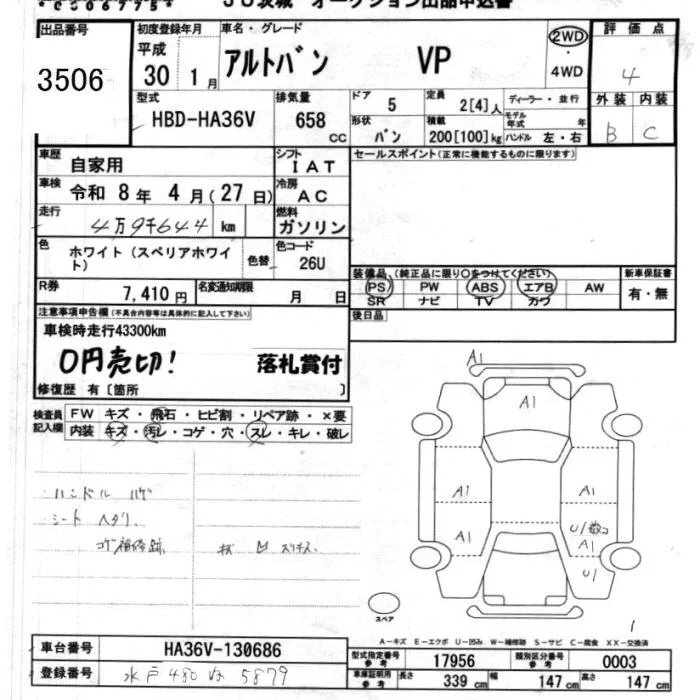 JU茨城 オークション出品申込書
出品番号
3506
初度登録年月
平成
30 1月
車名・グレード
アルトバン VP
2WD
・
4WD
評価点
4
外装 内装
B C
型式
HBD-HA36V
排気量
658 cc
ドア 5
形状 バン
定員 2[4]人
積載 200[100]kg
ディーラー・並行
モデル年式 年
ハンドル 左・右
車歴 自家用
シフト IAT
セールスポイント(正常に機能するものに限ります)
車検 令和 8年 4月(27日)
冷房 AC
走行 4万9千644 km
燃料 ガソリン
色 ホワイト(スペリアホワイト)
色替
色コード 26U
装備品(純正品に限り○をつけてください)
PS PW ABS エアB AW
SR ナビ TV カワ
新車保証書
有・無
R券 7,410円
名変通知期限 月 日
後日品
注意事項申告欄(不具合内容等は具体的に記入して下さい)
車検時走行43300km
0円売切! 落札賞付
修復歴 有〔箇所 〕
検査員記入欄
FW キズ・飛石・ヒビ割・リペア跡・×要
内装 キズ・汚レ・コゲ・穴・スレ・キレ・破レ
・ハンドル ハゲ
・シート ヘタリ
コゲ補修跡
A1
A1
A1 A1
A1 A1
U1
スペア
A-キズ E-エクボ U-凹み W-補修跡 S-サビ C-腐食 XX-交換済
車台番号 HA36V-130686
登録番号 水戸 480 5879
型式指定番号 参考 17956
類別区分番号 参考 0003
車庫証明用 参考 長さ 339 cm 幅 147 cm 高さ 147 cm